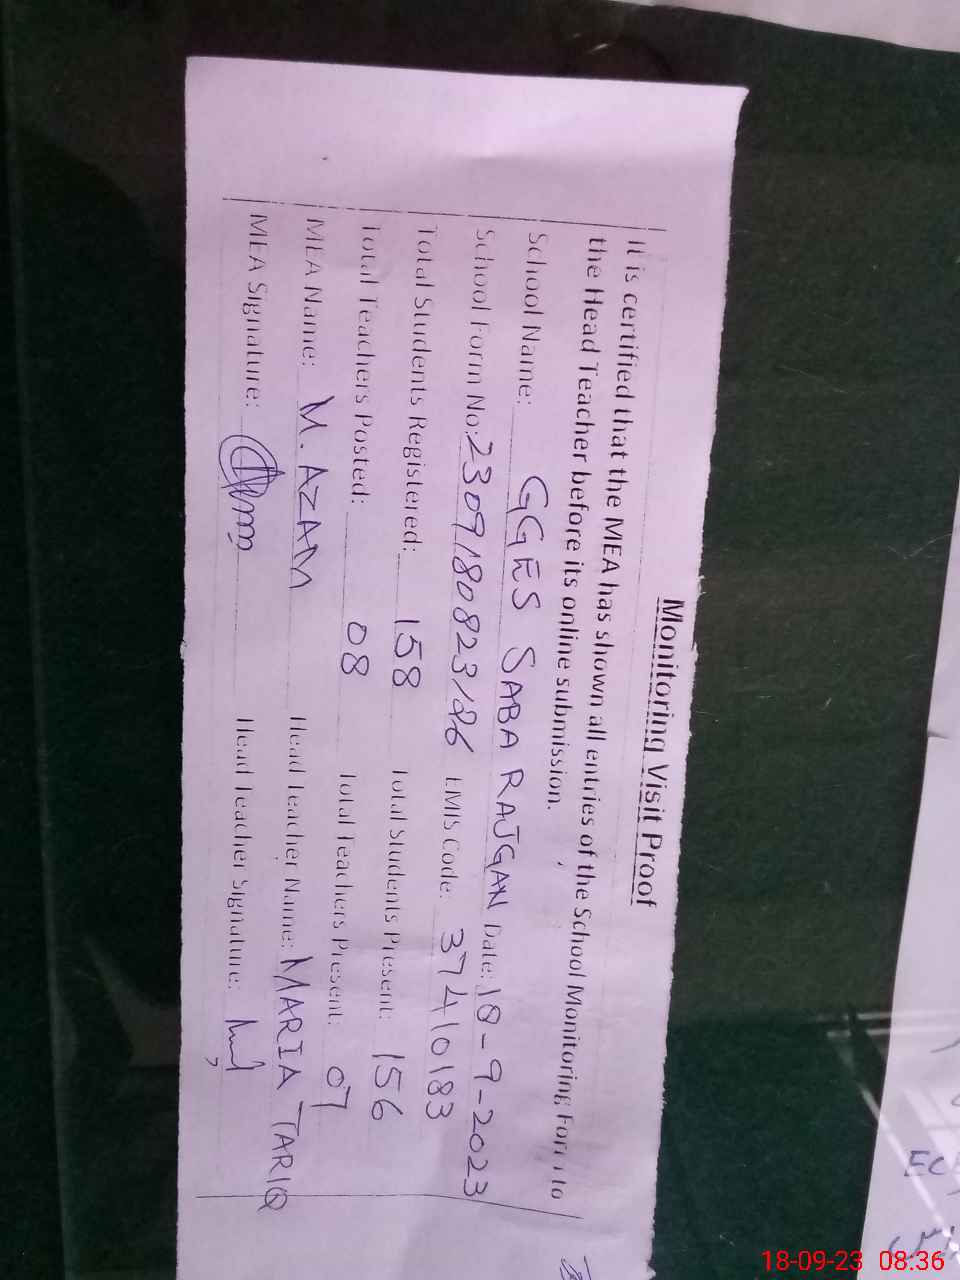 Monitoring Visit Proof
It is certified that the MEA has shown all entries of the School Monitoring Form to
the Head Teacher before its online submission.
School Name: GGES SABA RAJGAN Date: 18-9-2023
School Form No: 2309180823186 EMIS Code: 37410183
Total Students Registered: 158 Total Students Present: 156
Total Teachers Posted: 08 Total Teachers Present: 07
MEA Name: M. AZAM Head Teacher Name: MARIA TARIQ
MEA Signature: Head Teacher Signature:
18-09-23 08:36